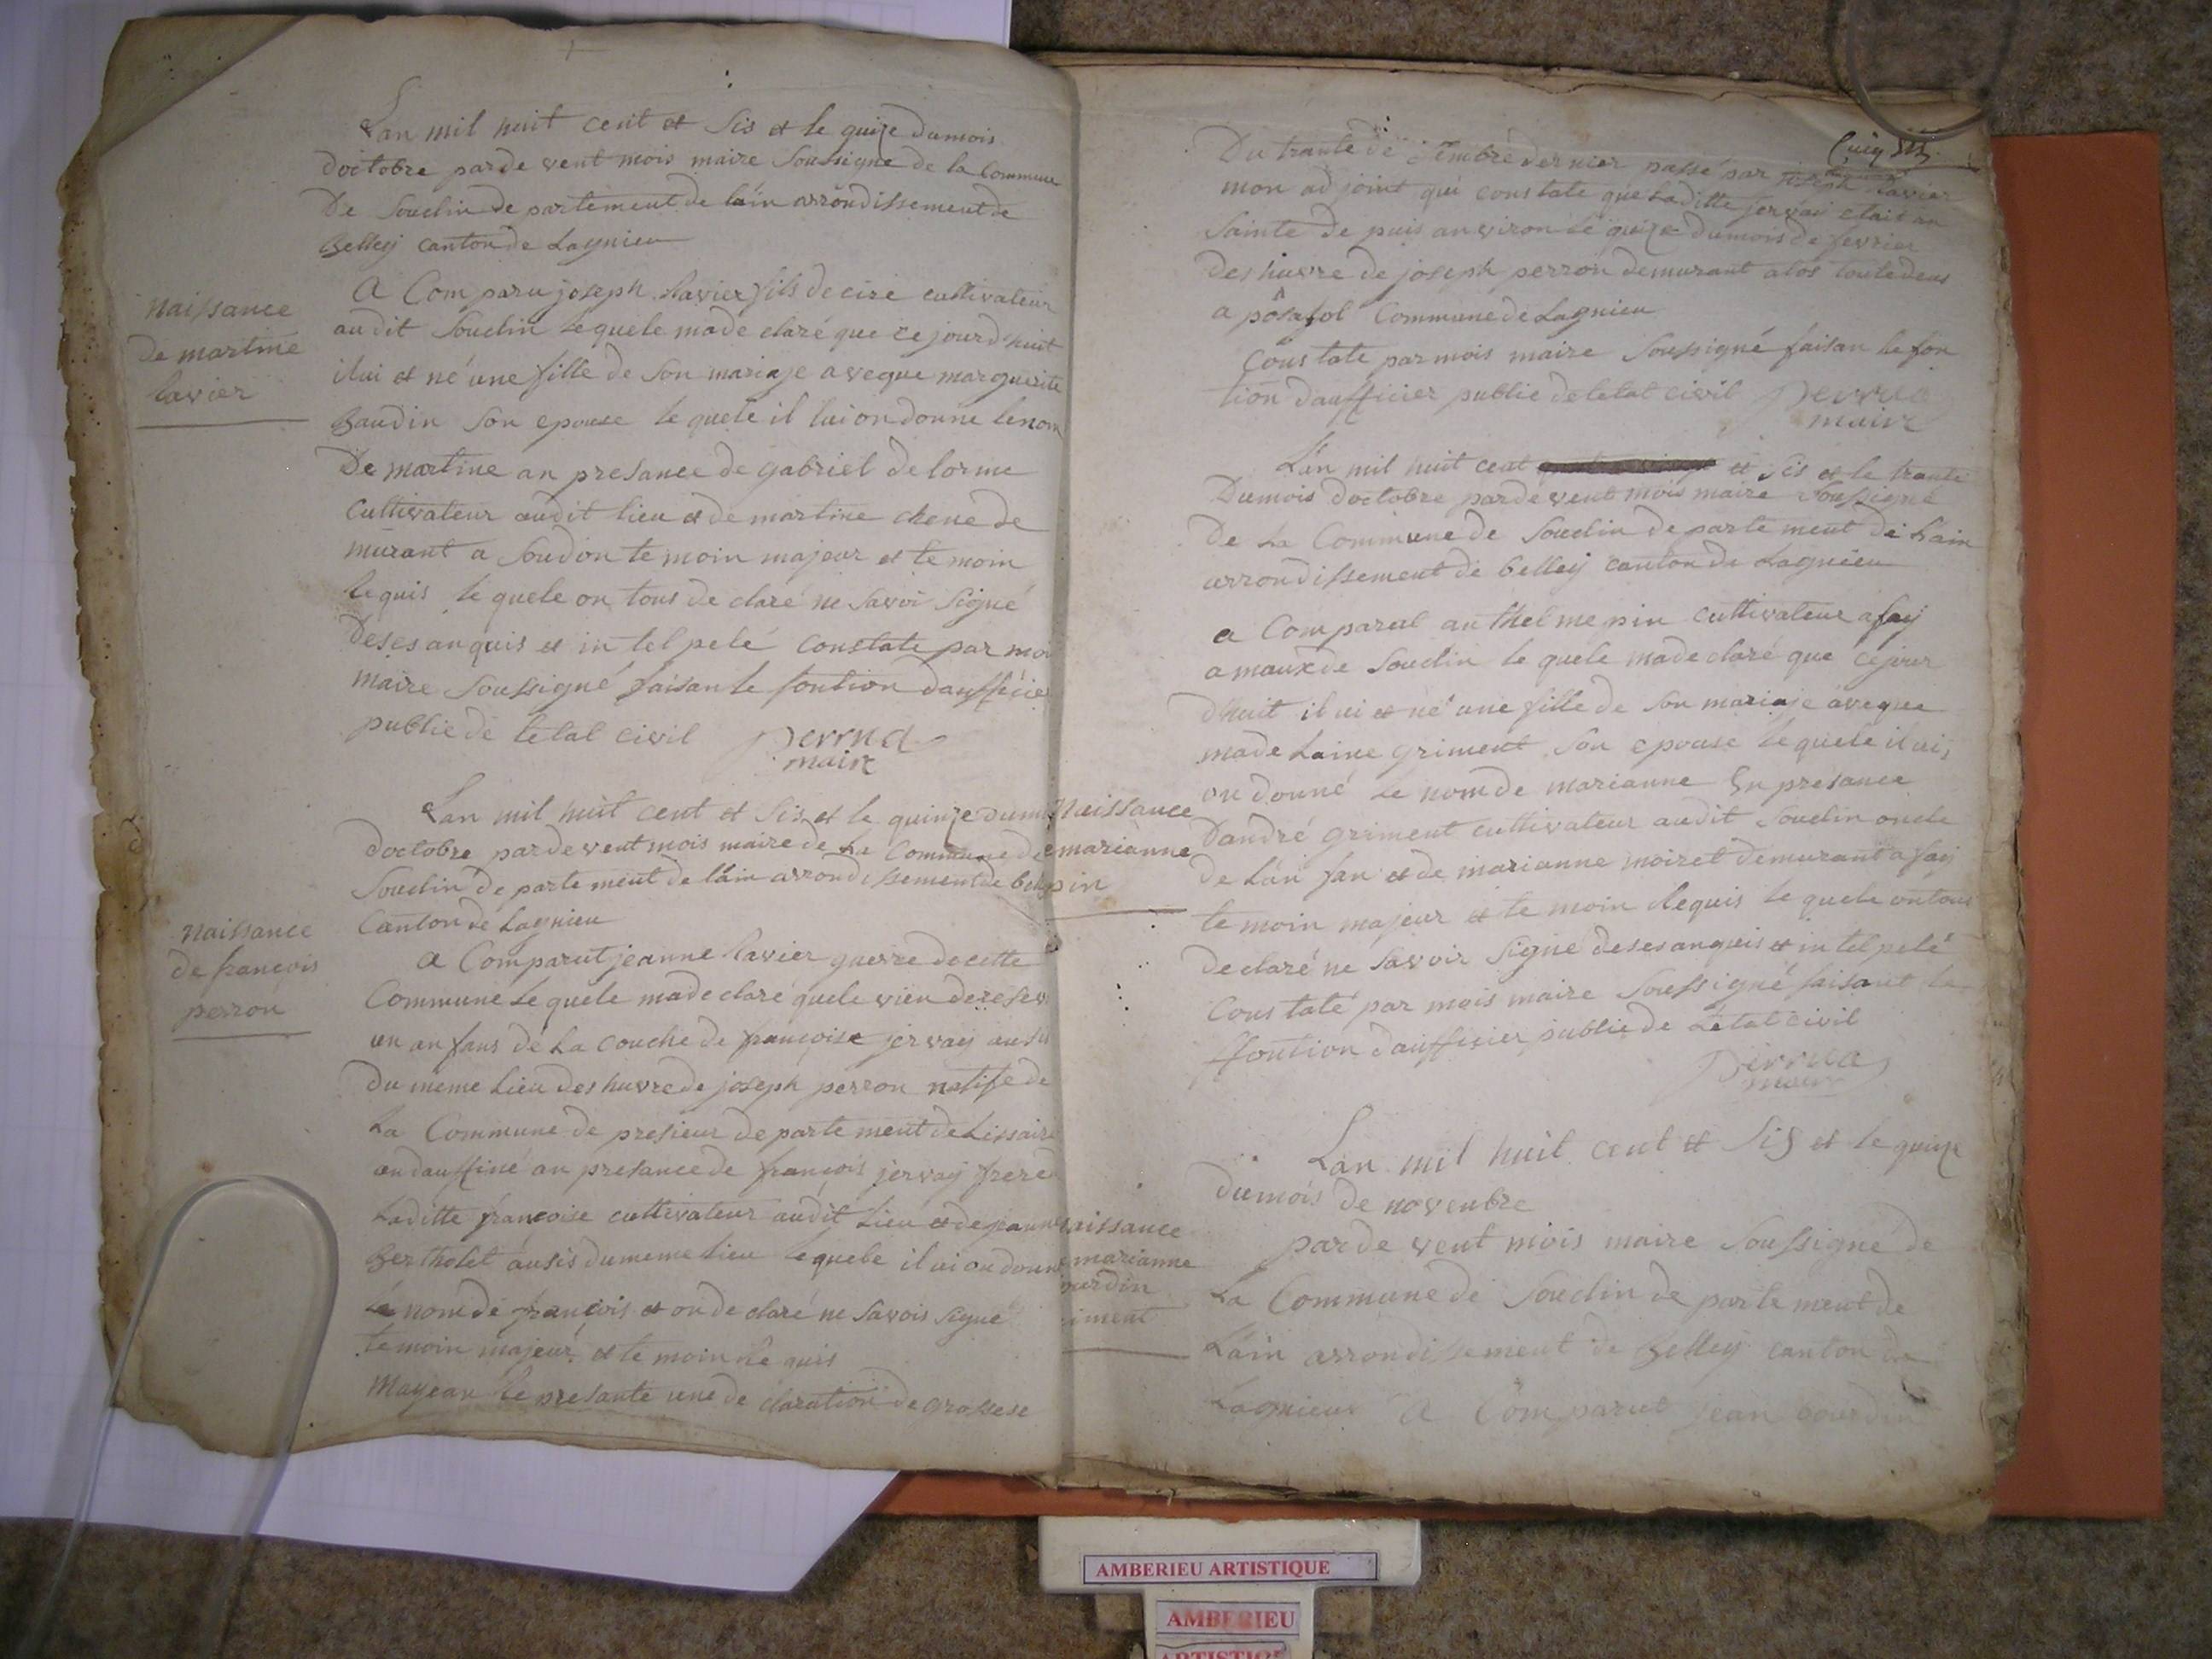 Lan mil huit cent et Sis et le quize dumois
doctobre parde vent mois maire Soussigne de la Commune
De Souclin de partement de lain arrondissement de
Belley canton de Lagnieu
Naissance
de martine
lavier
A Comparu joseph lavier fils de cire cultivateur
audit Souclin lequele made claré que ce jourdhuit
ilui et né une fille de Son mariaje aveque marguerite
Baudin Son epouse le quele il lui on donne lenom
De martine an presance de gabriel delorme
Cultivateur audit lieu et de martine chene de
murant a Soudon te moin majeur et te moin
lequis le quele on tous de claré ne Savoi Signé
Deses anquis et in tel pelé constate par moi
maire Soussigné faisan le fontion dauffície
public de letat civil Perrna
maire
Lan mil huit cent et Sis et le quinze dumo
doctobre parde vent mois maire de La Commune de
Souclin de parte ment de lain arrondissement de bel
Canton de Lagnieu
naissance
de françois
perron
A Comparut jeanne lavier guerre de cette
Commune Le quele made claré quele vien de resev
un anfans de La couche de françoise jervay ausi
Du meme Lieu des huvre de joseph perron natife de
La Commune de presieur de parte ment de Lissaire
andauffiné an presance de françois jervay frere
Laditte françoise cultivateur audit Lieu et de jeanne
Bertholet ausis dumeme lieu lequele il ui on donné
le nom de françois et on de claré ne Savois Signe
te moin majeur et te moin Re quis
Mayean le presante une de claration de grossese
Cinq
Du trante de Sembre dernier passé par joseph lavier
mon adjoint qui constate que Laditte jervay etait an
Sainte de puis anviron le quize dumois de fevrier
des huvre de joseph perron demurant alos toutedeus
a posafol Commune de Lagnieu
Constate par mois maire Soussigné faisan le fon
tion daufficier public de letat civil Perrna
maire
Lan mil huit cent et Sis et le trante
Dumois doctobre parde vent mois maire Soussigné
De La Commune de Souclin de parte ment de Lain
arrondissement de belley canton de Lagnieu
Naissance
marianne
pin
a Comparut anthelme pin cultivateur a fay
amaux de Souclin le quele made claré que cejour
dhuit il ui et né une fille de Son mariaje aveque
made Laine griment Son epouse le quele il ui
on donné Le nom de marianne En presance
Dandré griment cultivateur audit Souclin oncle
de Lan fan et de marianne moiret demurant a fay
te moin majeur et te moin Requis le quele on tous
declaré ne Savoir Signe deses anquis et in tel pelé
Constaté par mois maire Soussigné faisant la
ffontion daufficier public de Letat civil
Perrna
maire
Lan mil huit cent et Sis et le quize
dumois de novenbre
parde vent mois maire Soussigne de
La Commune de Souclin de parte ment de
Lain arrondissement de Belley canton de
Lagnieu A Comparut jean bourdin
naissance
marianne
urdin
iment
AMBERIEU ARTISTIQUE
AMBERIEU
ARTISTIQ